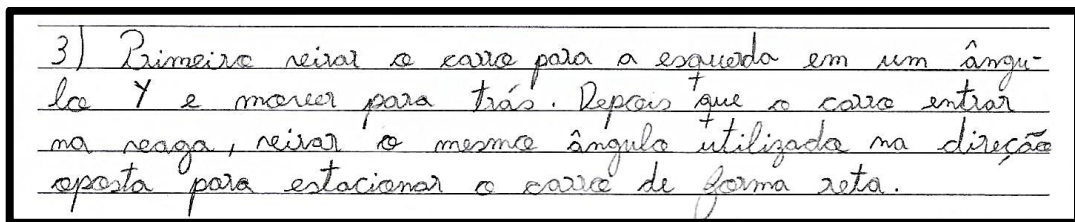 3) Primeiro virar o carro para a esquerda em um ângu-
lo Y e mover para trás. Depois que o carro entrar
na vaga, virar o mesmo ângulo utilizado na direção
oposta para estacionar o carro de forma reta.